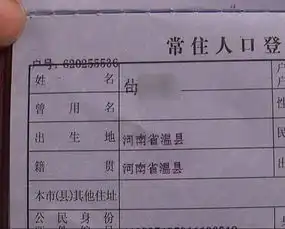 常住人口登
户号: 620255536
姓 名
曾 用 名
出 生 地 河南省温县
籍 贯 河南省温县
本市(县)其他住址
公 民 身 份